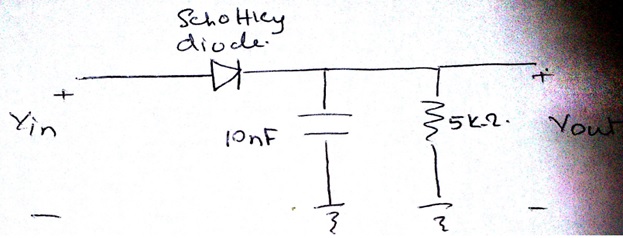 Schottky
diode.
+
+
Vin
10nF
5kΩ.
Vout
-
-